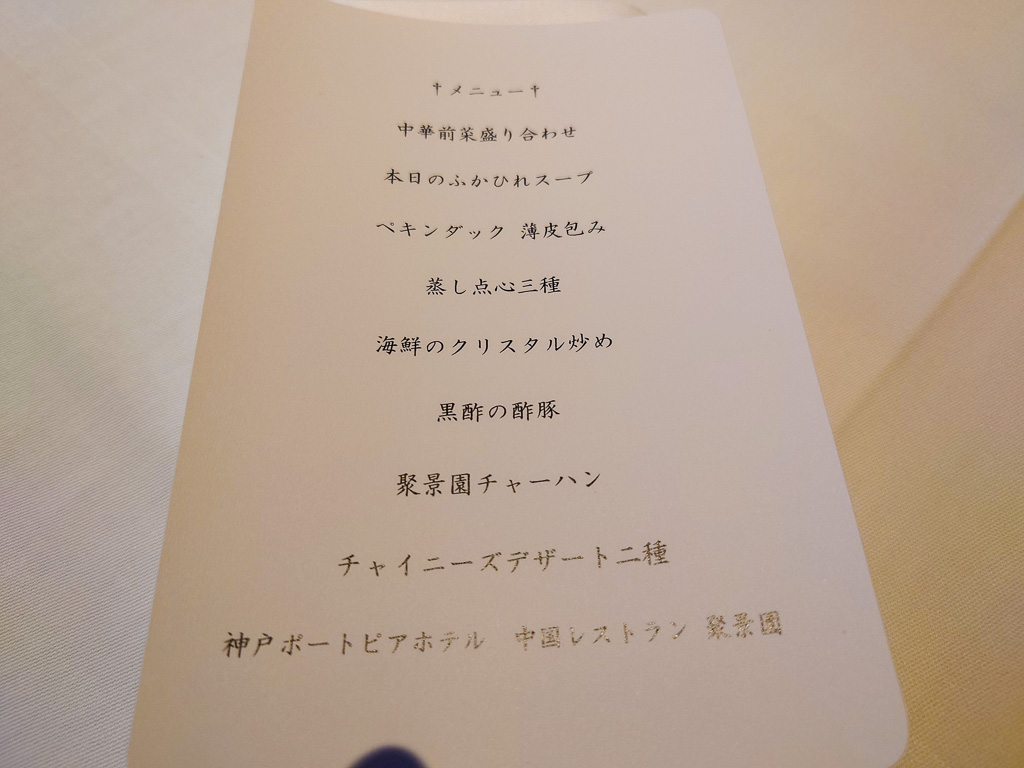 †メニュー†
中華前菜盛り合わせ
本日のふかひれスープ
ペキンダック 薄皮包み
蒸し点心三種
海鮮のクリスタル炒め
黒酢の酢豚
聚景園チャーハン
チャイニーズデザート二種
神戸ポートピアホテル 中国レストラン 聚景園